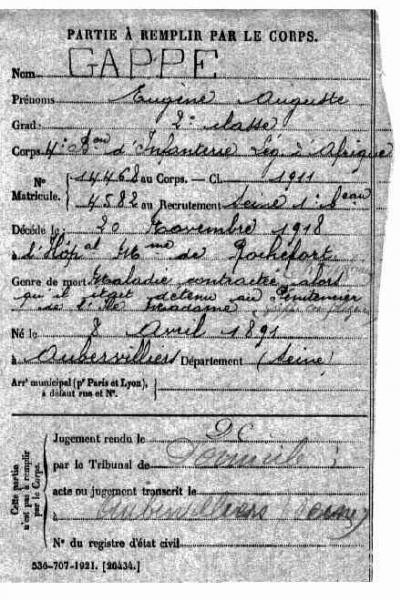 PARTIE À REMPLIR PAR LE CORPS.
Nom GAPPE
Prénoms Eugène Auguste
Grade 2e classe
Corps 4e Bon d'Infanterie Lég. d'Afrique
No Matricule. 14468 au Corps. — Cl. 1911
4582 au Recrutement Seine 1er Beau
Décédé le 20 Novembre 1918
à l'Hôpal Mme de Rochefort
Genre de mort Maladie contractée alors
qu'il était détenu au Pénitencier
de l'Ile Madame
Né le 8 Avril 1891
à Aubervilliers Département (Seine)
Arrt municipal (pr Paris et Lyon),
à défaut rue et No.
Cette partie n'est pas à remplir par le Corps.
Jugement rendu le
par le Tribunal de
acte ou jugement transcrit le
à Aubervilliers (Seine)
No du registre d'état civil
536-707-1921. [26434.]